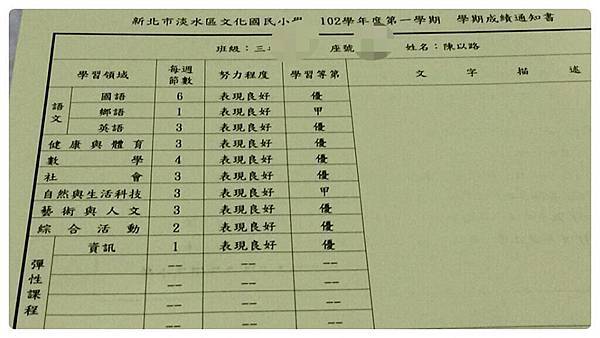 新北市淡水區文化國民小學 102學年度第一學期 學期成績通知書
班級：三 座號 姓名：陳以路
學習領域 每週節數 努力程度 學習等第 文字描述
語文 國語 6 表現良好 優
鄉語 1 表現良好 甲
英語 3 表現良好 優
健康與體育 3 表現良好 優
數學 4 表現良好 優
社會 3 表現良好 優
自然與生活科技 3 表現良好 甲
藝術與人文 3 表現良好 優
綜合活動 2 表現良好 優
彈性課程 資訊 1 表現良好 優
-- -- --
-- -- --
-- -- --
-- -- --